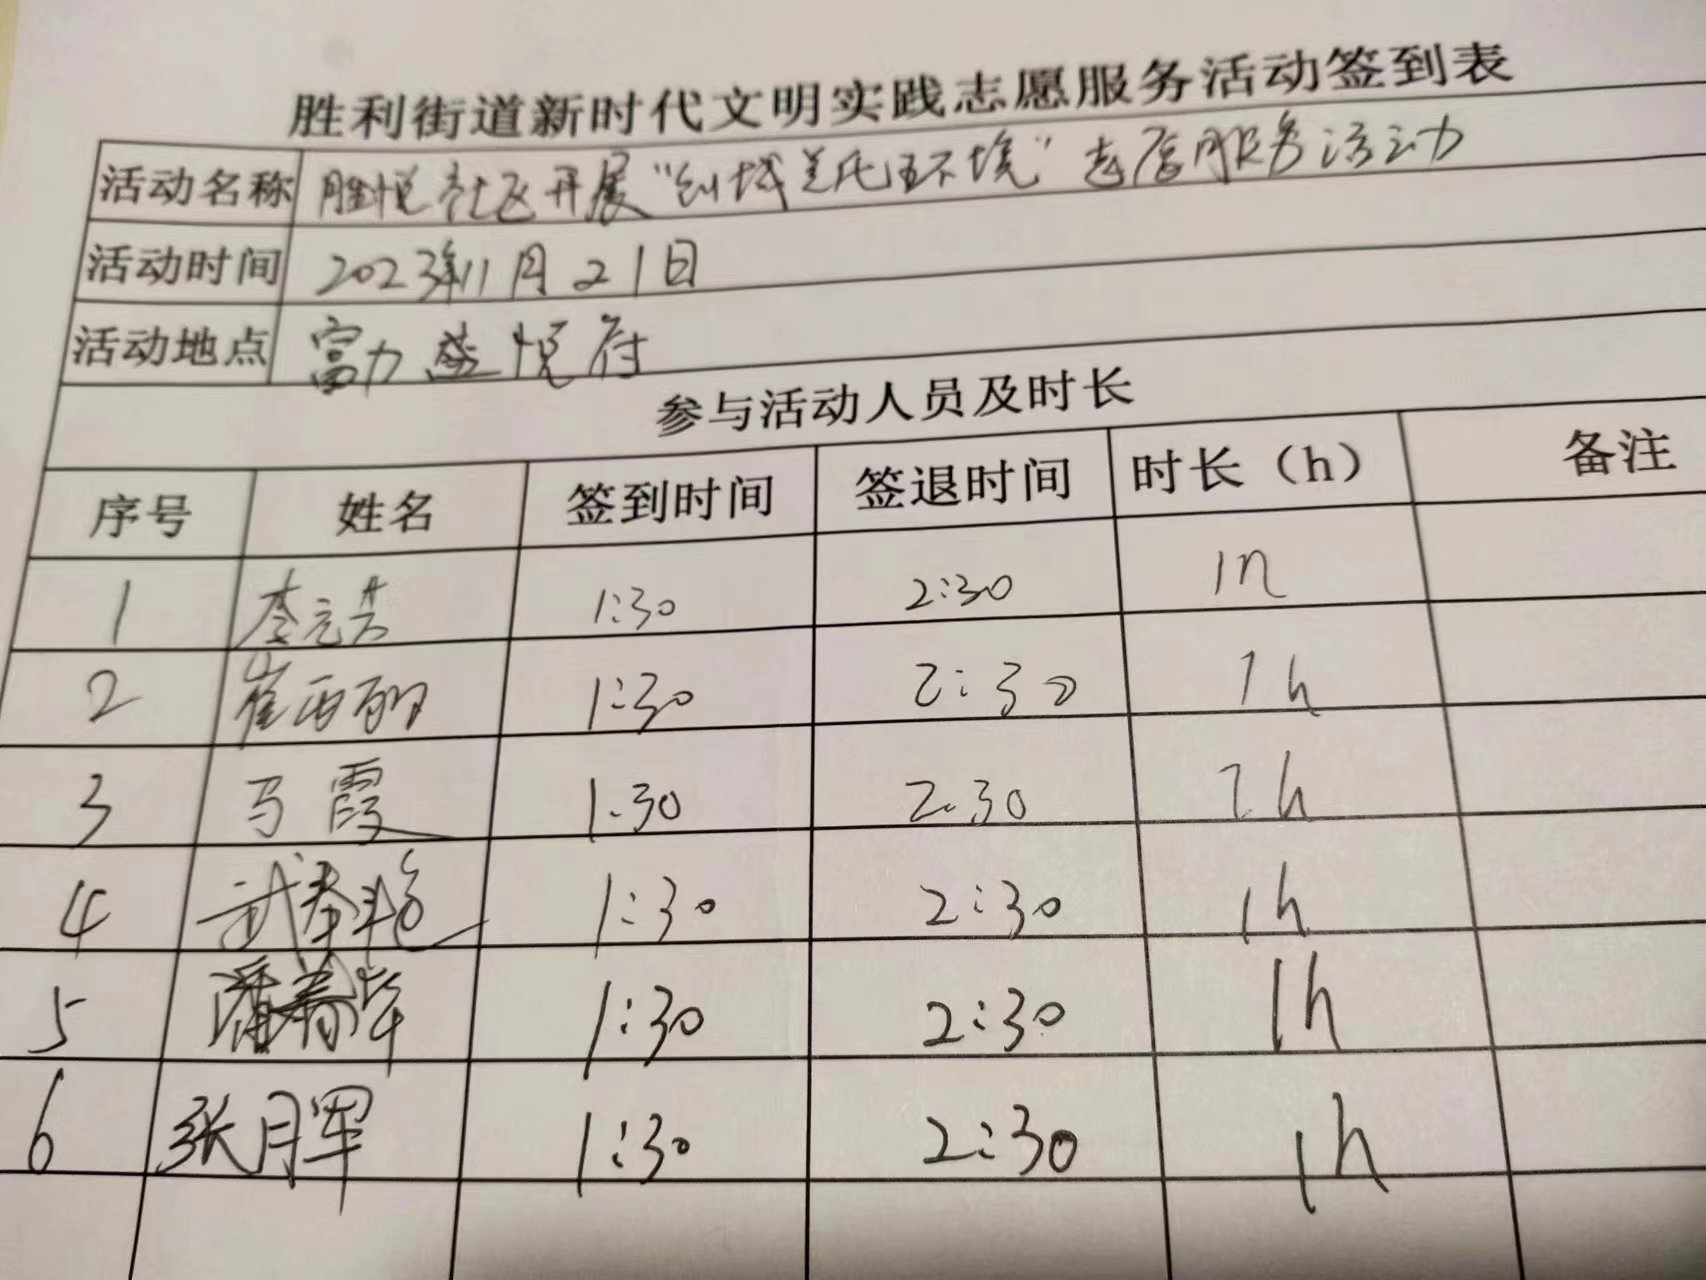 胜利街道新时代文明实践志愿服务活动签到表
活动名称 胜悦社区开展“创城美化环境”志愿服务活动
活动时间 2023年11月21日
活动地点 富力盛悦府
参与活动人员及时长
序号 姓名 签到时间 签退时间 时长（h） 备注
1 李元芳 1:30 2:30 1h
2 崔西 1:30 2:30 1h
3 马霞 1:30 2:30 1h
4 武春艳 1:30 2:30 1h
5 潘春华 1:30 2:30 1h
6 张月军 1:30 2:30 1h